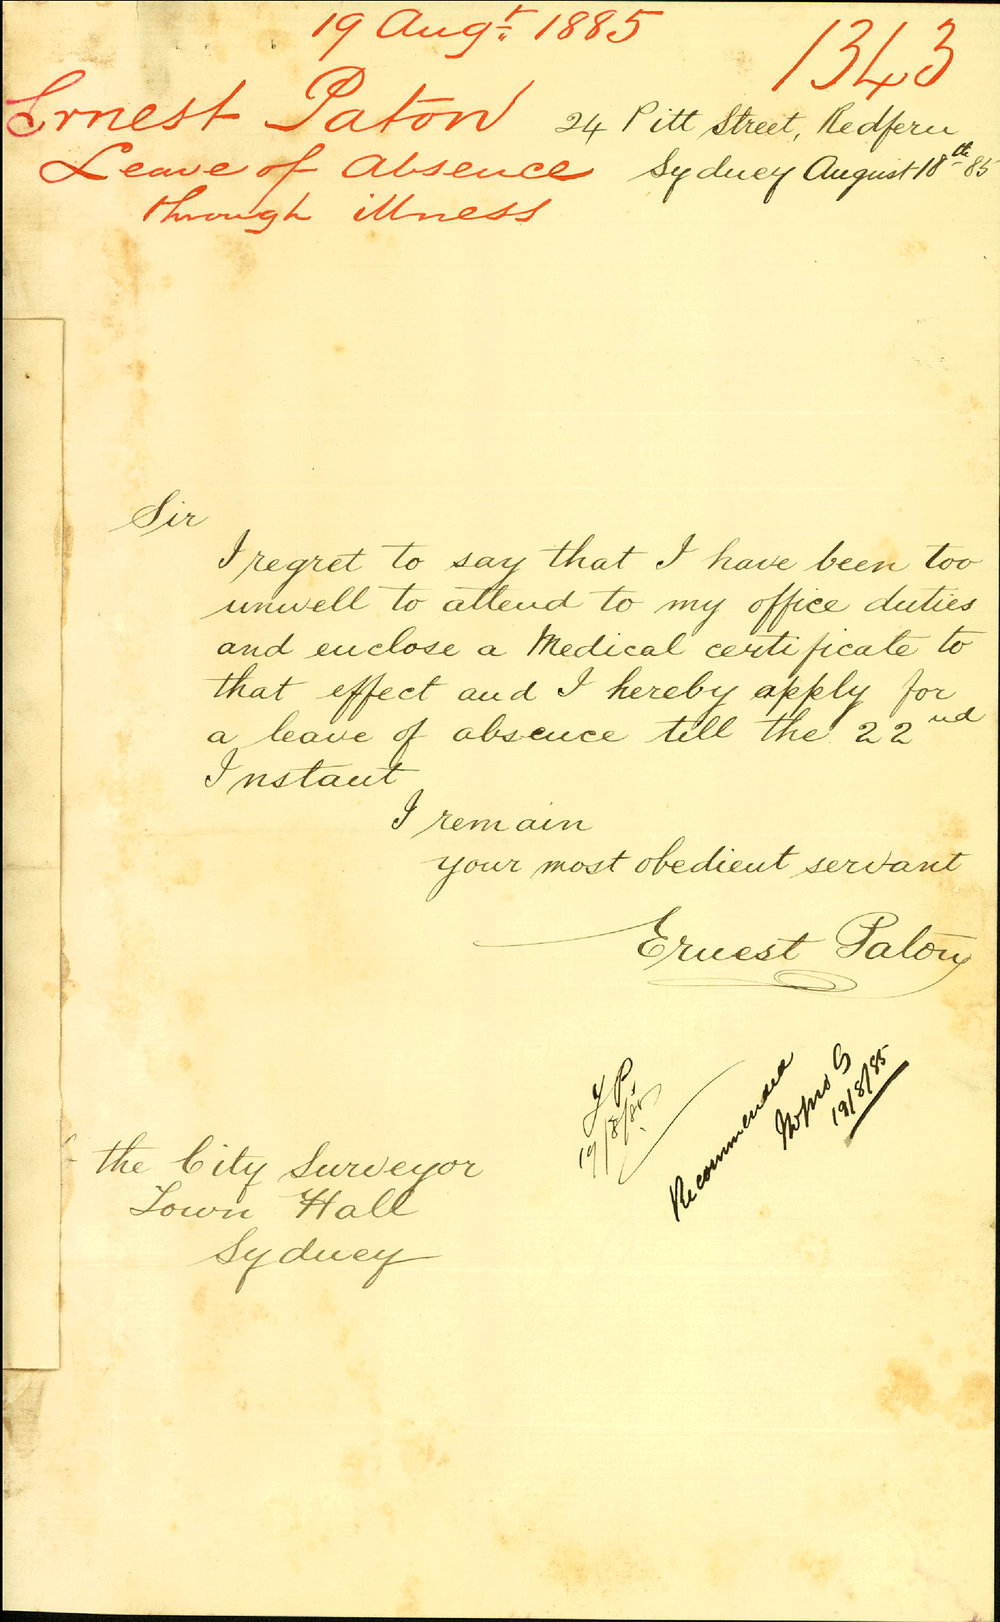 19 Augt. 1885
1343
Ernest Paton
Leave of Absence
through illness
24 Pitt Street, Redfern
Sydney August 18th 85
Sir
I regret to say that I have been too
unwell to attend to my office duties
and enclose a Medical certificate to
that effect and I hereby apply for
a leave of absence till the 22nd
Instant
I remain
your most obedient servant
Ernest Paton
19/8/85
Recommended
19/8/85
the City Surveyor
Town Hall
Sydney